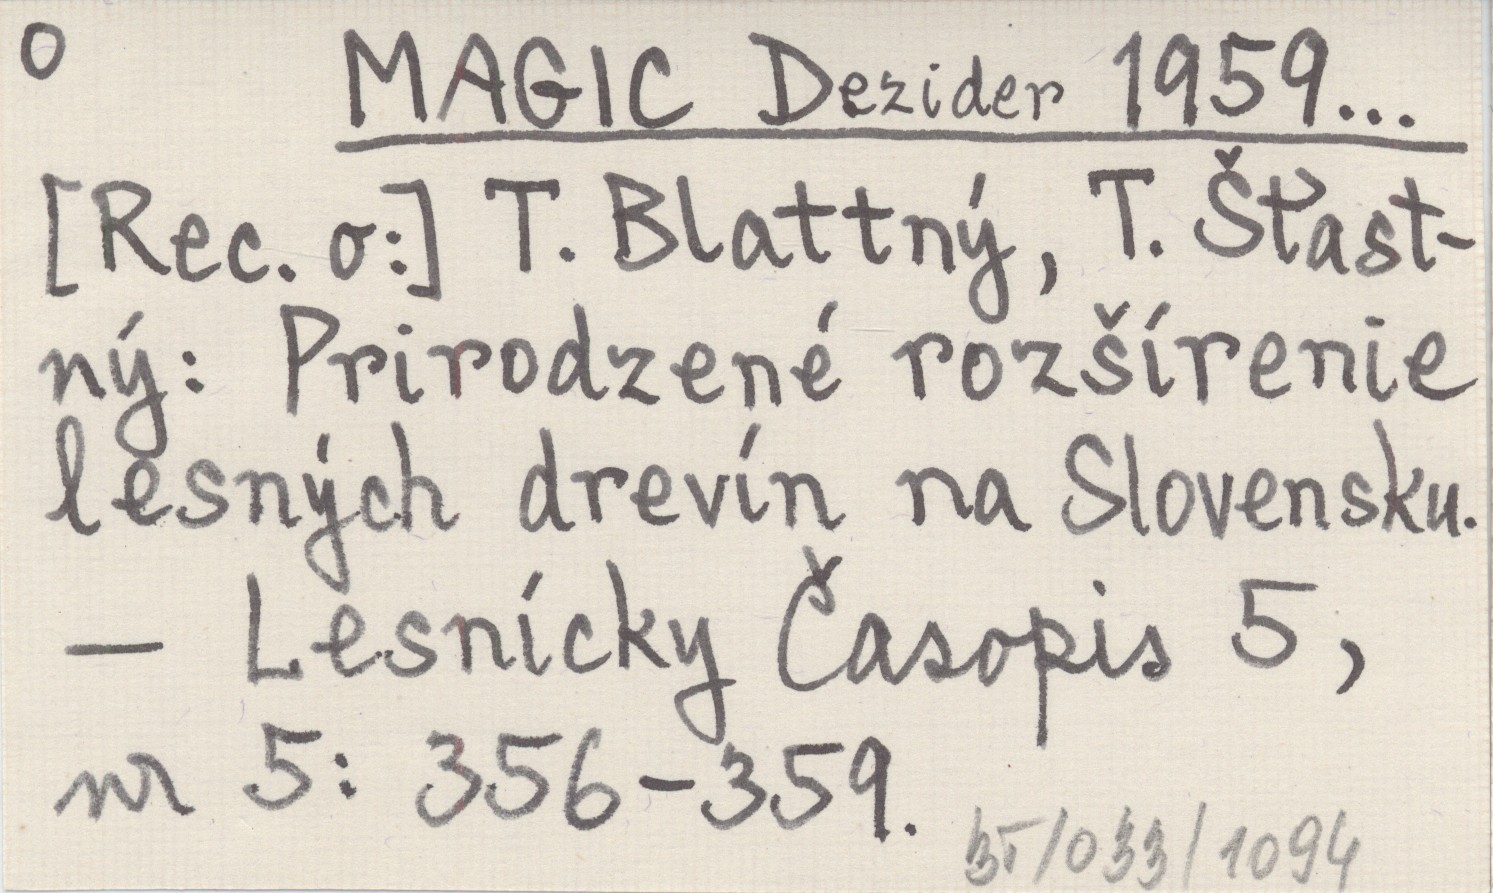 o MAGIC Dezider 1959...
[Rec. o:] T. Blattný, T. Šťast-
ný: Prirodzené rozšírenie
lesných drevín na Slovensku.
— Lesnícky Časopis 5,
nr 5: 356-359.
/033/1094